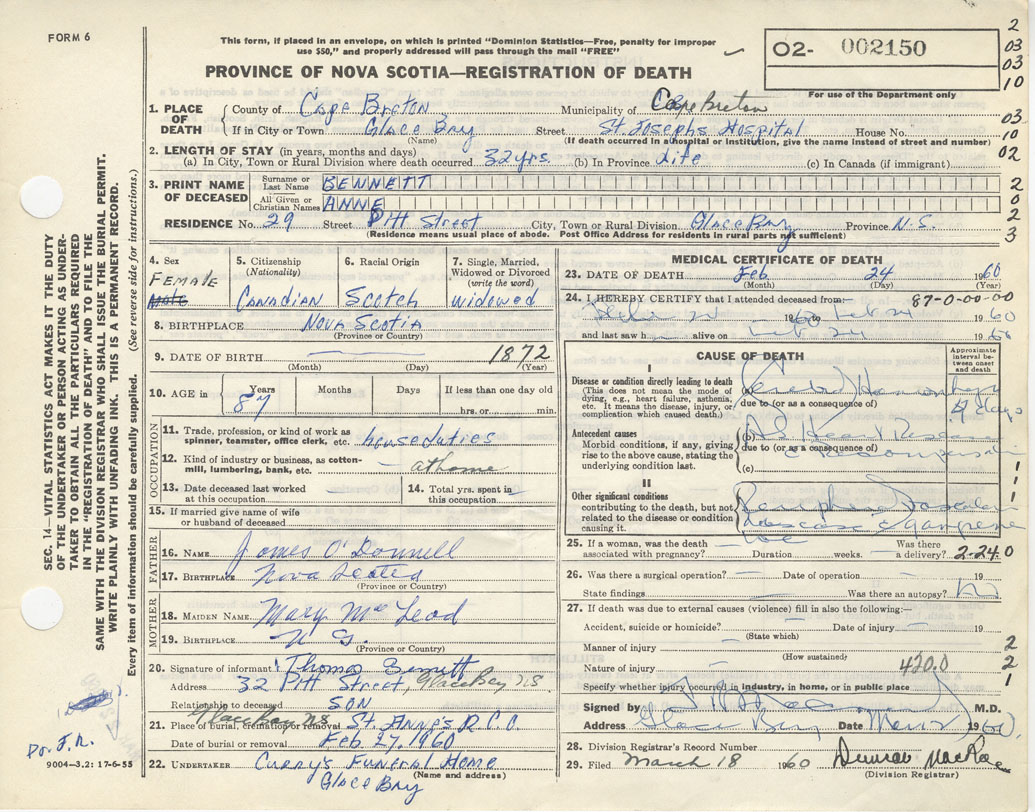 FORM 6
This form, if placed in an envelope, on which is printed "Dominion Statistics—Free, penalty for improper
use $50," and properly addressed will pass through the mail "FREE"
O2- 002150
For use of the Department only
2
03
03
10
PROVINCE OF NOVA SCOTIA—REGISTRATION OF DEATH
1. PLACE OF DEATH
County of Cape Breton Municipality of Cape Breton 03
If in City or Town Glace Bay Street St. Josephs Hospital House No. 10
(Name) (If death occurred in a hospital or institution, give the name instead of street and number)
2. LENGTH OF STAY (in years, months and days) 02
(a) In City, Town or Rural Division where death occurred 32 yrs. (b) In Province Life (c) In Canada (if immigrant)
3. PRINT NAME OF DECEASED
Surname or Last Name BENNETT 2
All Given or Christian Names ANNE 0
2
RESIDENCE No. 29 Street Pitt Street City, Town or Rural Division Glace Bay Province N.S. 3
(Residence means usual place of abode. Post Office Address for residents in rural parts not sufficient)
4. Sex
Female
Male
5. Citizenship
(Nationality)
Canadian
6. Racial Origin
Scotch
7. Single, Married,
Widowed or Divorced
(write the word)
widowed
8. BIRTHPLACE Nova Scotia
(Province or Country)
9. DATE OF BIRTH 1872
(Month) (Day) (Year)
10. AGE in Years 87 Months Days If less than one day old
hrs. or min.
OCCUPATION
11. Trade, profession, or kind of work as
spinner, teamster, office clerk, etc. house duties
12. Kind of industry or business, as cotton-
mill, lumbering, bank, etc. at home
13. Date deceased last worked
at this occupation
14. Total yrs. spent in
this occupation
15. If married give name of wife
or husband of deceased
FATHER
16. NAME James O'Donnell
17. BIRTHPLACE Nova Scotia
(Province or Country)
MOTHER
18. MAIDEN NAME Mary McLeod
19. BIRTHPLACE N S.
(Province or Country)
20. Signature of informant Thomas Bennett
Address 32 Pitt Street, Glace Bay NS
Relationship to deceased SON
Glace Bay NS
21. Place of burial, cremation or removal St. Anne's R.C.
Date of burial or removal Feb. 27, 1960
22. UNDERTAKER Curry's Funeral Home
(Name and address)
Glace Bay
MEDICAL CERTIFICATE OF DEATH
23. DATE OF DEATH Feb 24 1960
(Month) (Day) (Year)
24. I HEREBY CERTIFY that I attended deceased from 87-0-00-00
1960 Feb 24 1960
and last saw h alive on Feb 24 1960
CAUSE OF DEATH
Approximate interval between onset and death
I
Disease or condition directly leading to death
(This does not mean the mode of
dying, e.g., heart failure, asthenia,
etc. It means the disease, injury, or
complication which caused death.)
(a)
due to (or as a consequence of)
days
Antecedent causes
Morbid conditions, if any, giving
rise to the above cause, stating the
underlying condition last.
(b) Heart Disease
due to (or as a consequence of)
(c)
1
1
1
II
Other significant conditions
contributing to the death, but not
related to the disease or condition
causing it.
Peripheral Vascular
disease & Gangrene
25. If a woman, was the death
associated with pregnancy? Duration weeks. Was there
a delivery? 2-24.0
26. Was there a surgical operation? Date of operation 19
State findings Was there an autopsy?
27. If death was due to external causes (violence) fill in also the following:—
Accident, suicide or homicide? Date of injury 19
(State which)
Manner of injury 2
(How sustained)
Nature of injury 420.0 2
Specify whether injury occurred in industry, in home, or in public place 1
Signed by M.D.
Address Glace Bay Date 1960
28. Division Registrar's Record Number
29. Filed March 18 1960 Duncan MacRae
(Division Registrar)
SEC. 14—VITAL STATISTICS ACT MAKES IT THE DUTY
OF THE UNDERTAKER OR PERSON ACTING AS UNDER-
TAKER TO OBTAIN ALL THE PARTICULARS REQUIRED
IN THE "REGISTRATION OF DEATH" AND TO FILE THE
SAME WITH THE DIVISION REGISTRAR WHO SHALL ISSUE THE BURIAL PERMIT.
WRITE PLAINLY WITH UNFADING INK. THIS IS A PERMANENT RECORD.
Every item of information should be carefully supplied. (See reverse side for instructions.)
9004—3.2: 17-6-55